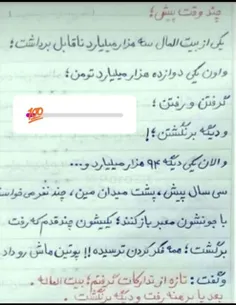 چند وقت پیش؛
یکی از بیت المال سه هزار میلیارد ناقابل برداشت؛
و اون یکی دوازده هزار میلیارد تومن؛
گرفتن و رفتن؛
و دیگه برنگشتن؛!
و الان یکی دیگه ۹۴ هزار میلیارد و...
سی سال پیش، پشت میدان مین، چند نفر می خواستن
با جونشون معبر باز کنند؛ یکیشون چند قدم که رفت
برگشت؛ همه فکر کردن ترسیده!! پوتین هاش رو داد
و گفت: تازه از تدارکات گرفتم؛ بیت الماله .
بعد پا برهنه رفت و دیگه برنگشت .